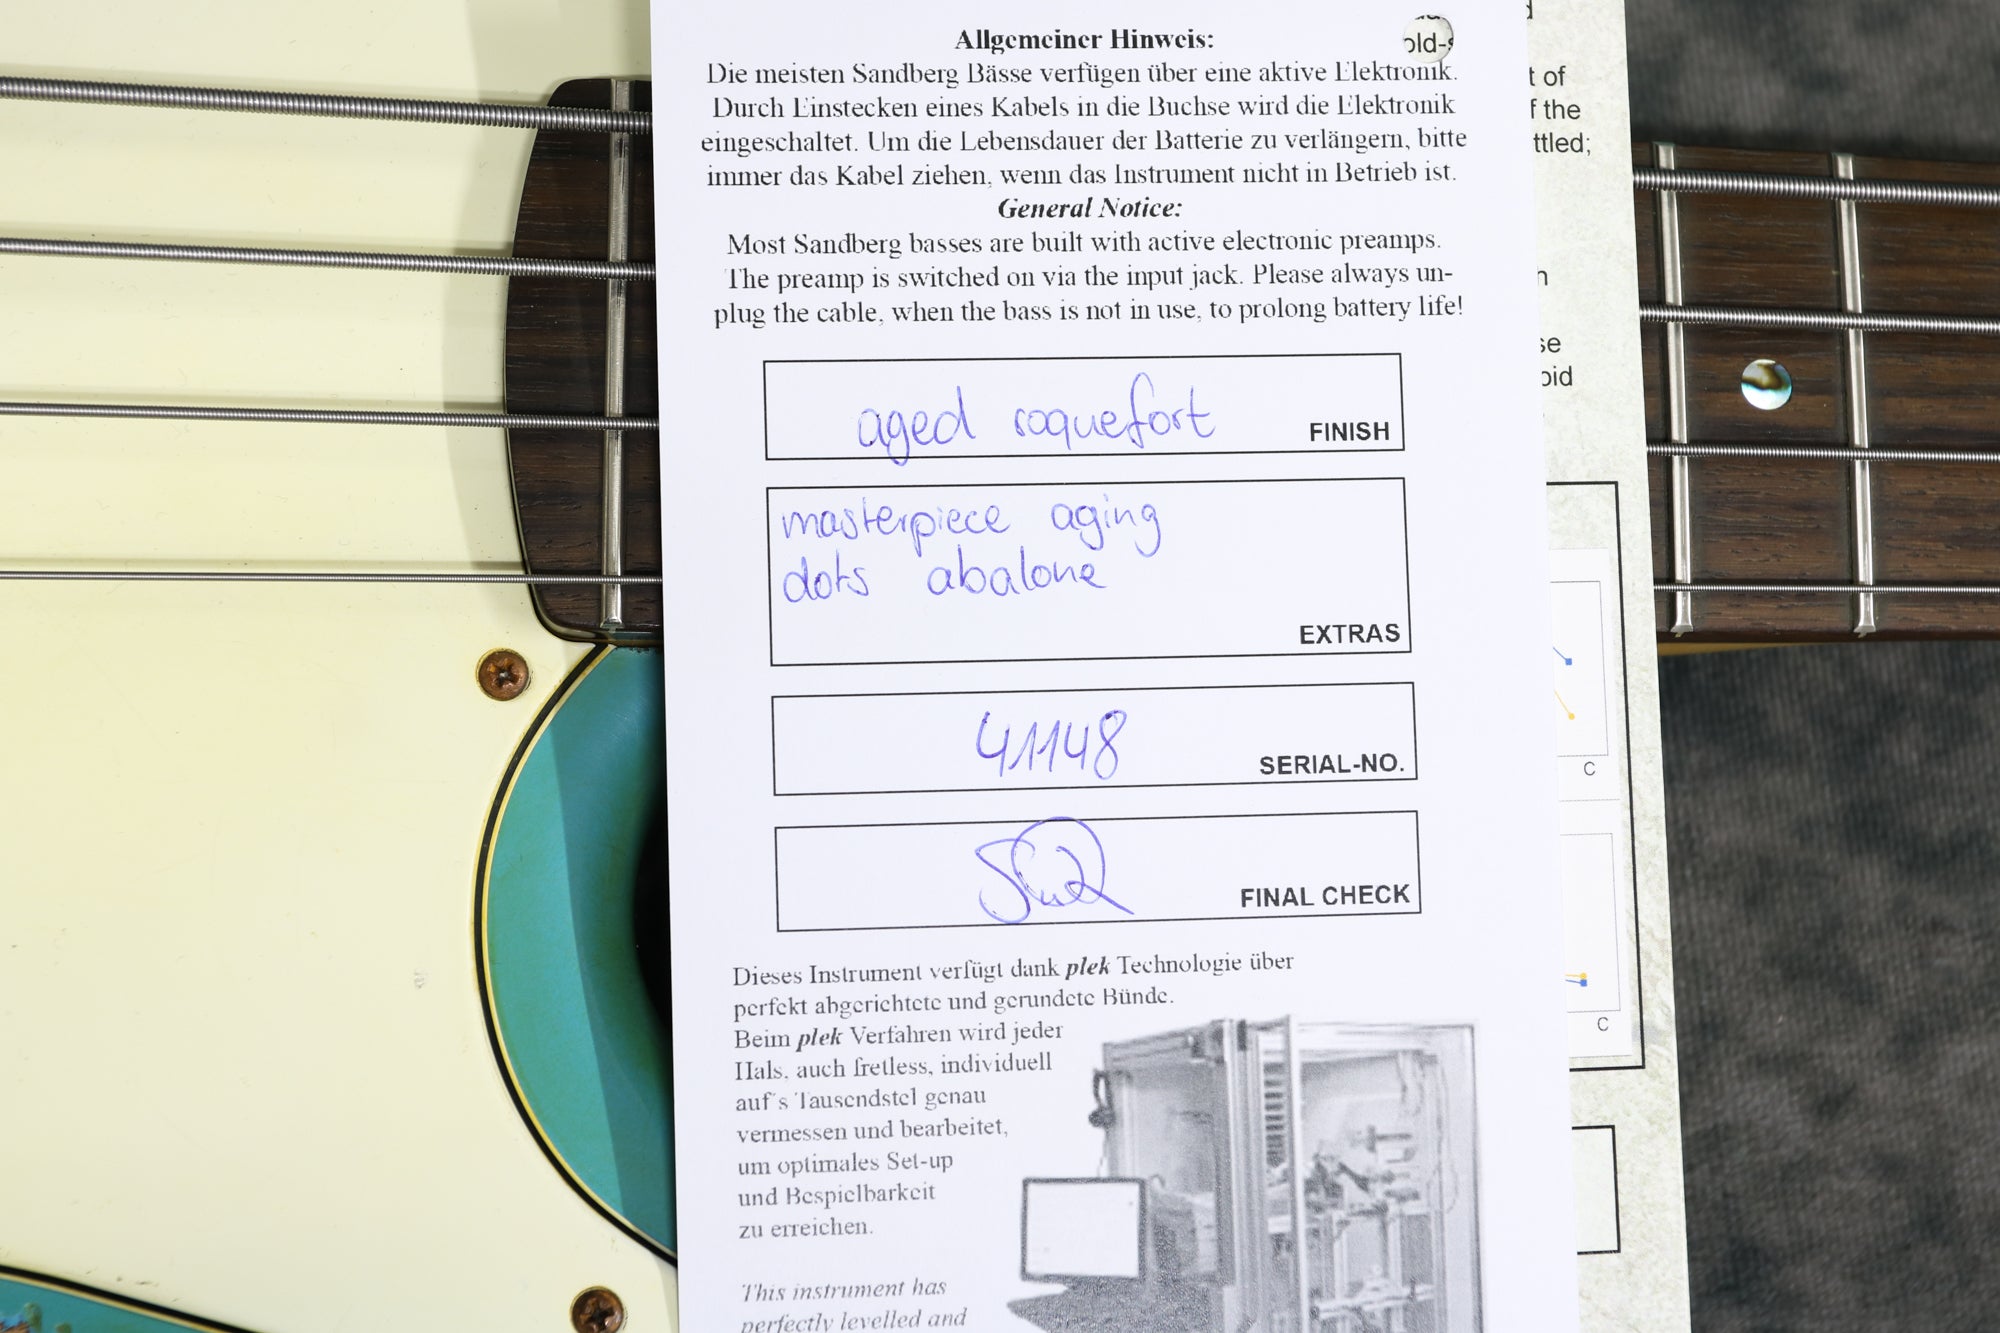 Allgemeiner Hinweis:
Die meisten Sandberg Bässe verfügen über eine aktive Elektronik.
Durch Einstecken eines Kabels in die Buchse wird die Elektronik
eingeschaltet. Um die Lebensdauer der Batterie zu verlängern, bitte
immer das Kabel ziehen, wenn das Instrument nicht in Betrieb ist.
General Notice:
Most Sandberg basses are built with active electronic preamps.
The preamp is switched on via the input jack. Please always un-
plug the cable, when the bass is not in use, to prolong battery life!
aged roquefort
FINISH
masterpiece aging
dots abalone
EXTRAS
41148
SERIAL-NO.
FINAL CHECK
Dieses Instrument verfügt dank plek Technologie über
perfekt abgerichtete und gerundete Bünde.
Beim plek Verfahren wird jeder
Hals, auch fretless, individuell
auf's Tausendstel genau
vermessen und bearbeitet,
um optimales Set-up
und Bespielbarkeit
zu erreichen.
This instrument has
perfectly levelled and
t of
f the
ttled;
se
oid
C
C